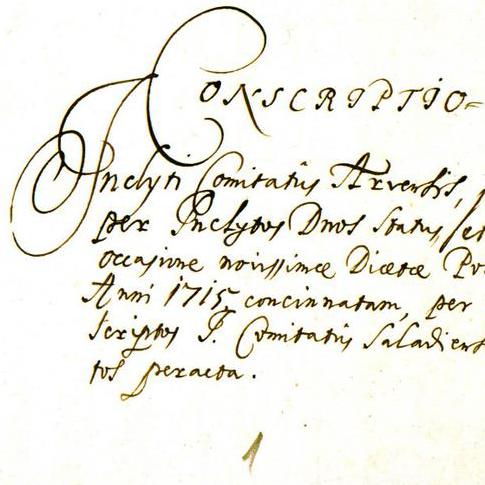 CONSCRIPTIO=
Inclyti Comitatûs Arvensis,
per Inclytos Dnos Status, et
occasione novissimæ Diætæ Po
Anni 1715 concinnatam, per
scriptos I. Comitatûs Saladiens
tos peracta.
1